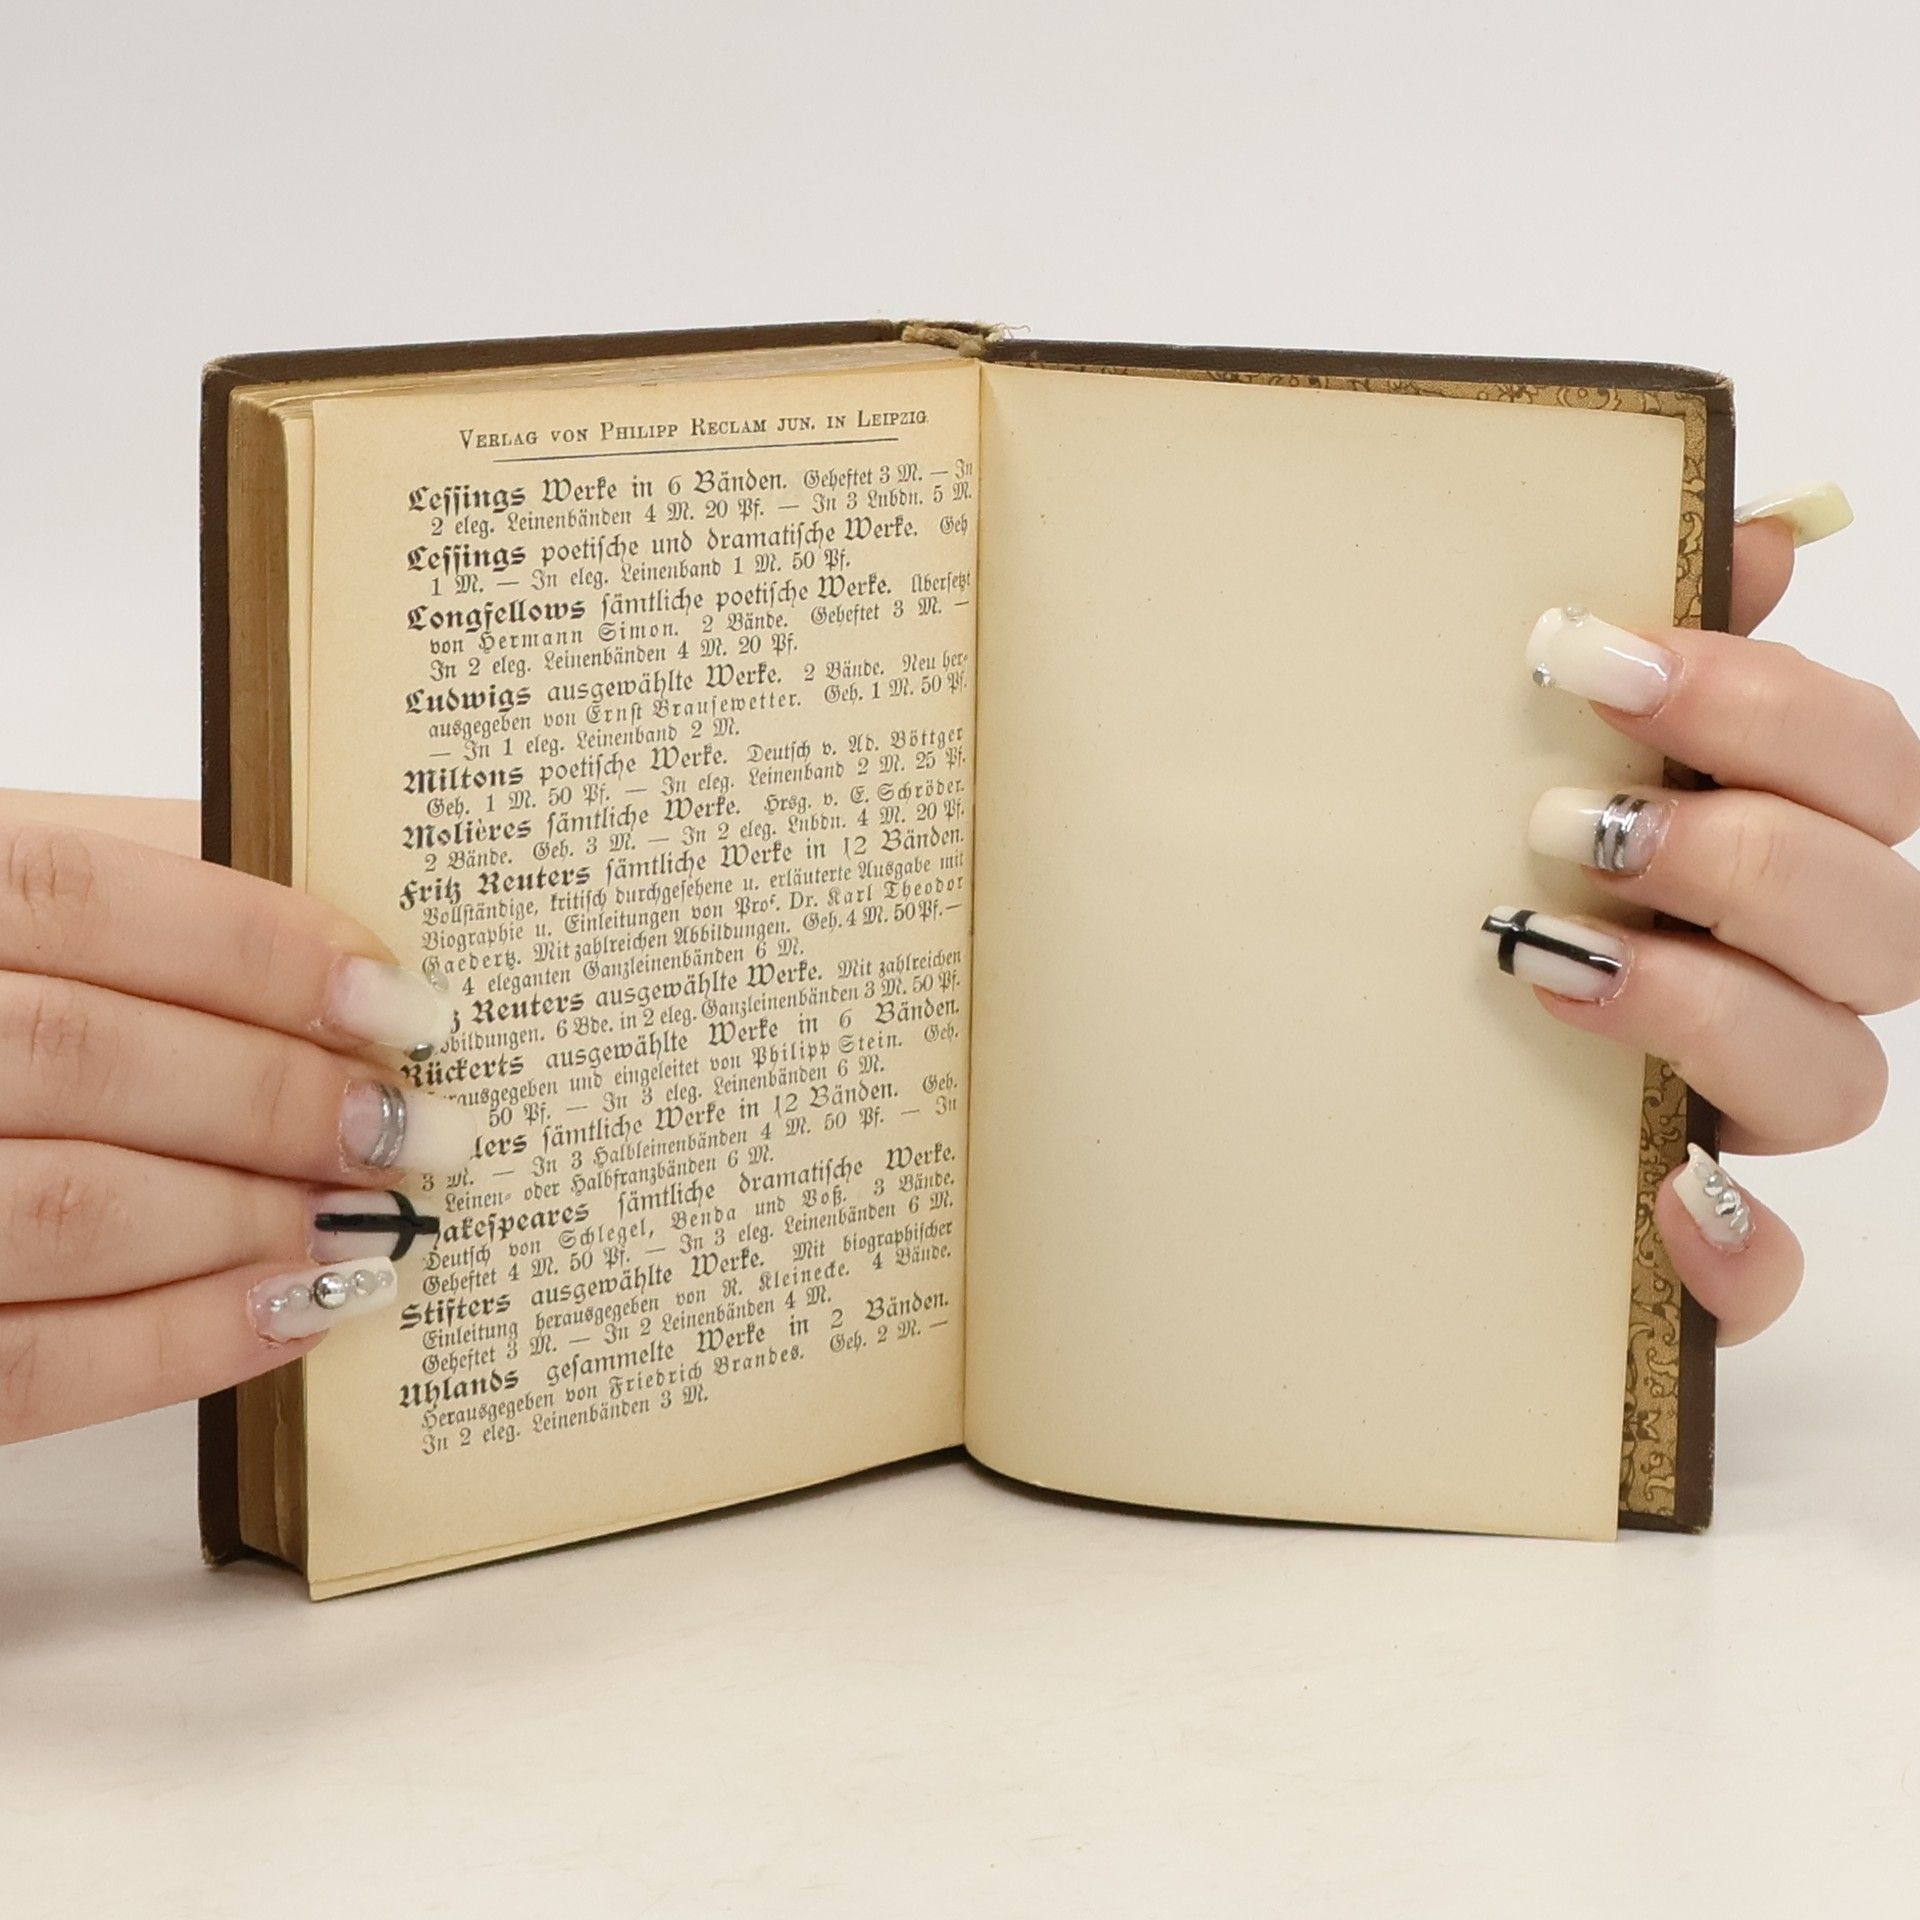 VERLAG VON PHILIPP RECLAM JUN. IN LEIPZIG
Lessings Werke in 6 Bänden. Geheftet 3 M. — In
2 eleg. Leinenbänden 4 M. 20 Pf. — In 3 Lnbdn. 5 M.
Lessings poetische und dramatische Werke. Geh
1 M. — In eleg. Leinenband 1 M. 50 Pf.
Longfellows sämtliche poetische Werke. Übersetzt
von Hermann Simon. 2 Bände. Geheftet 3 M. —
In 2 eleg. Leinenbänden 4 M. 20 Pf.
Ludwigs ausgewählte Werke. 2 Bände. Neu her-
ausgegeben von Ernst Brausewetter. Geh. 1 M. 50 Pf.
— In 1 eleg. Leinenband 2 M.
Miltons poetische Werke. Deutsch v. Ad. Böttger
Geh. 1 M. 50 Pf. — In eleg. Leinenband 2 M. 25 Pf.
Molières sämtliche Werke. Hrsg. v. E. Schröder.
2 Bände. Geh. 3 M. — In 2 eleg. Lnbdn. 4 M. 20 Pf.
Fritz Reuters sämtliche Werke in 12 Bänden.
Vollständige, kritisch durchgesehene u. erläuterte Ausgabe mit
Biographie u. Einleitungen von Prof. Dr. Karl Theodor
Gaedertz. Mit zahlreichen Abbildungen. Geh. 4 M. 50 Pf. —
4 eleganten Ganzleinenbänden 6 M.
z Reuters ausgewählte Werke. Mit zahlreichen
bbildungen. 6 Bde. in 2 eleg. Ganzleinenbänden 3 M. 50 Pf.
Rückerts ausgewählte Werke in 6 Bänden.
erausgegeben und eingeleitet von Philipp Stein. Geh.
50 Pf. — In 3 eleg. Leinenbänden 6 M.
lers sämtliche Werke in 12 Bänden. Geh.
3 M. — In 3 Halbleinenbänden 4 M. 50 Pf. — In
Leinen- oder Halbfranzbänden 6 M.
akespeares sämtliche dramatische Werke.
Deutsch von Schlegel, Benda und Voß. 3 Bände.
Geheftet 4 M. 50 Pf. — In 3 eleg. Leinenbänden 6 M.
Stifters ausgewählte Werke. Mit biographischer
Einleitung herausgegeben von R. Kleinecke. 4 Bände.
Geheftet 3 M. — In 2 Leinenbänden 4 M.
Uhlands gesammelte Werke in 2 Bänden.
Herausgegeben von Friedrich Brandes. Geh. 2 M. —
In 2 eleg. Leinenbänden 3 M.